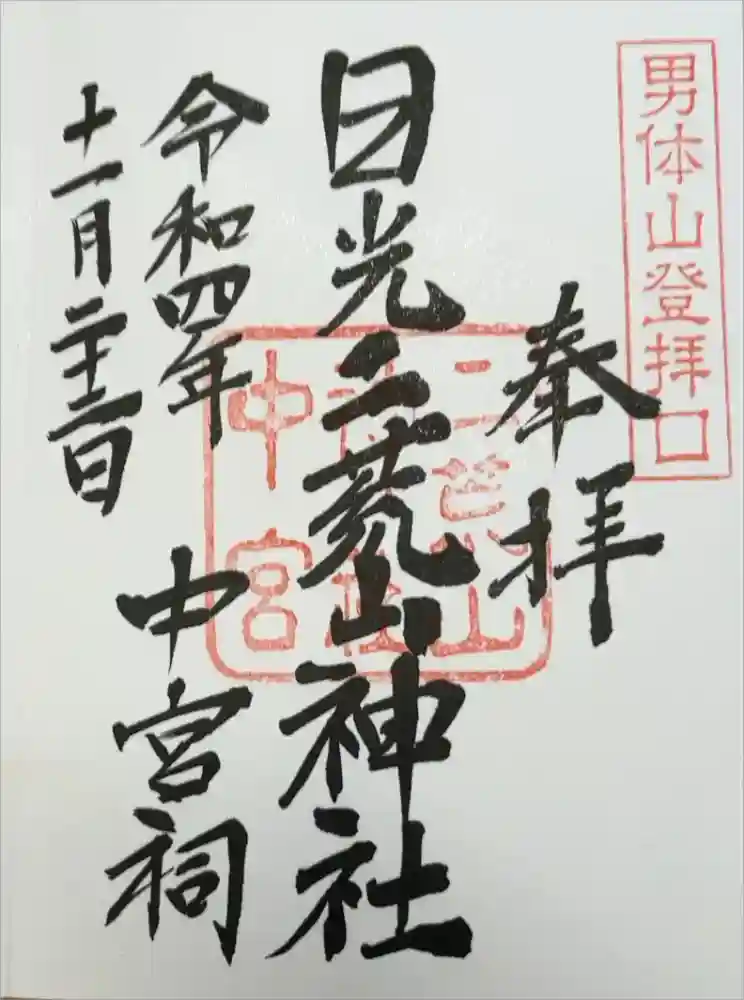 男体山登拝口
奉拝
日光二荒山神社
二荒山
神社
中宮
中宮祠
令和四年
十一月二十三日